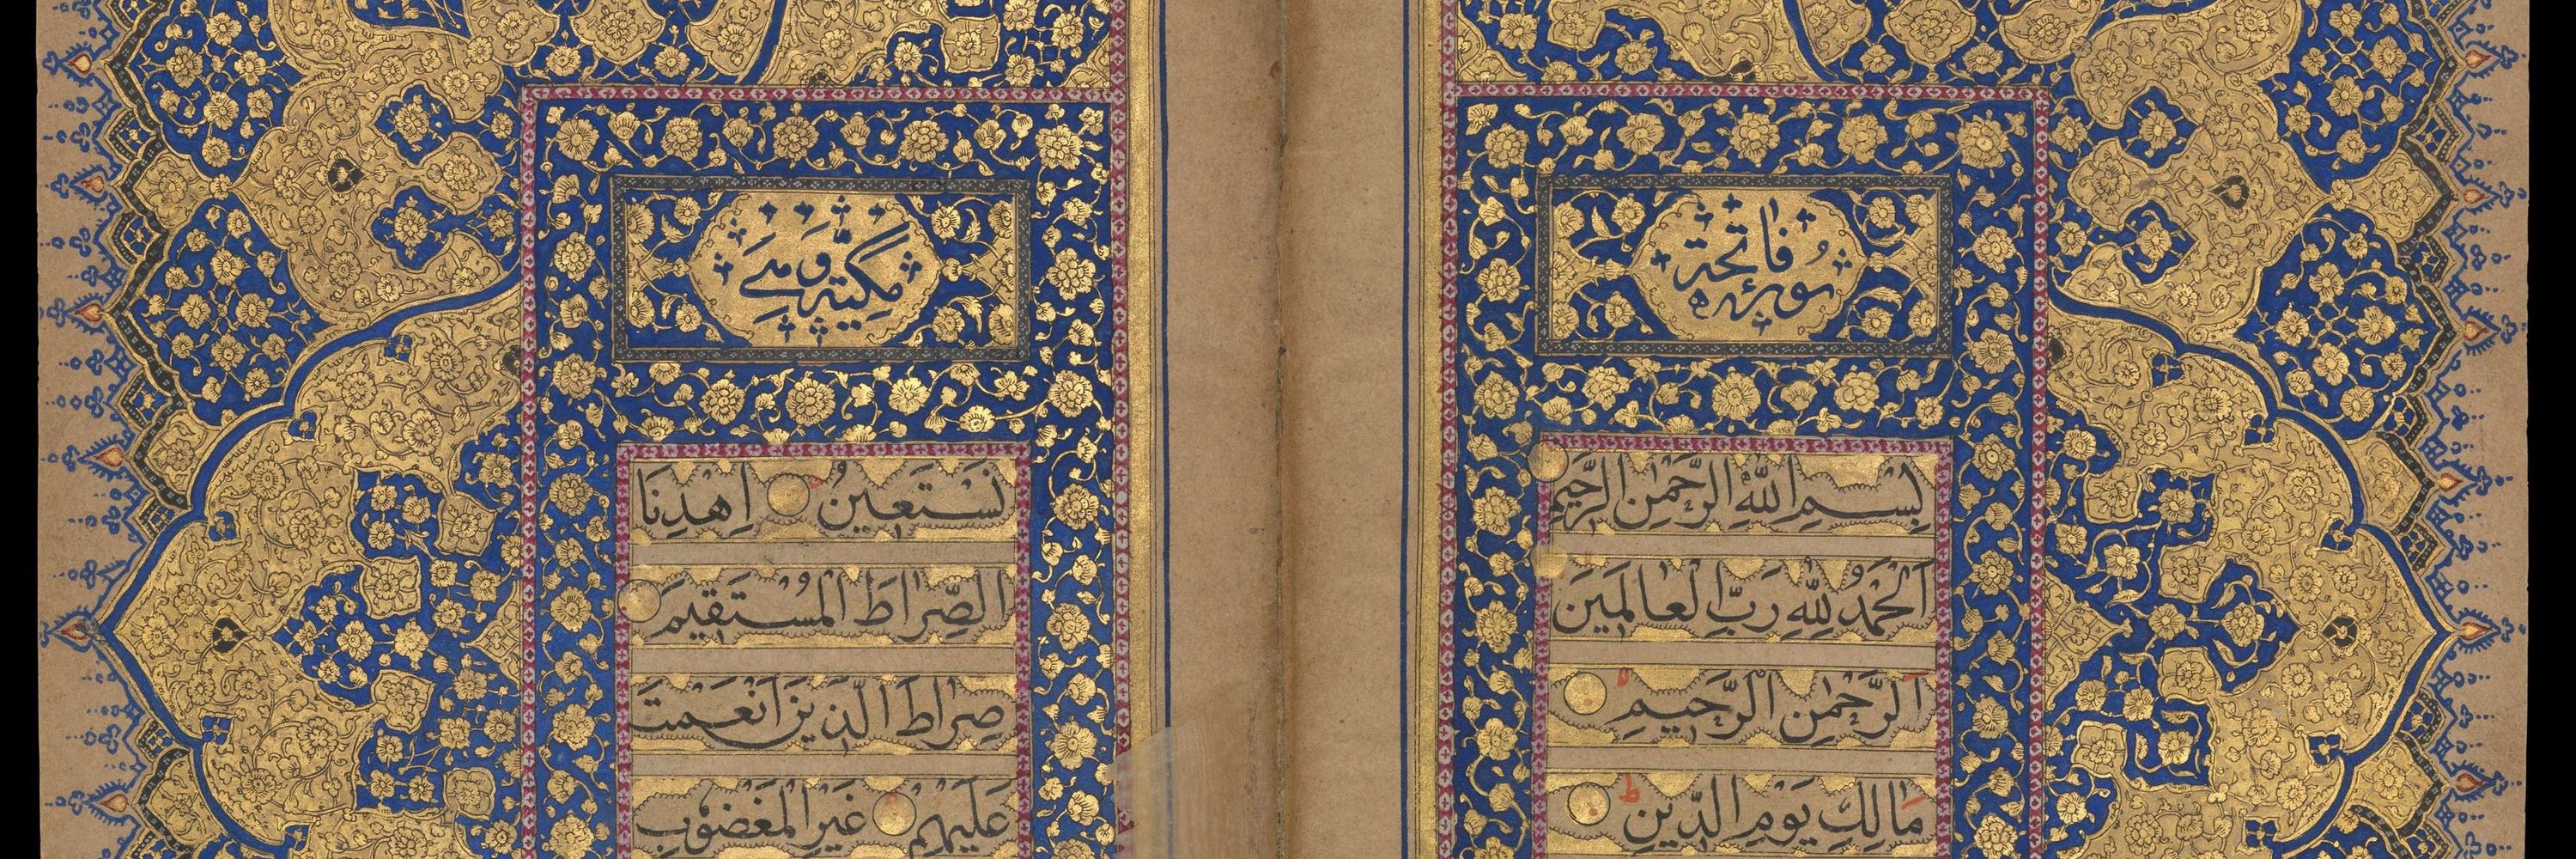 سُورَةُ فَاتِحَة
بِسْمِ اللّٰهِ الرَّحْمٰنِ الرَّحِيمِ
اَلْحَمْدُ لِلّٰهِ رَبِّ الْعَالَمِينَ
اَلرَّحْمٰنِ الرَّحِيمِ
مَالِكِ يَوْمِ الدِّينِ
مَكِّيَّة وَ هِيَ
نَسْتَعِينُ اِهْدِنَا
الصِّرَاطَ الْمُسْتَقِيمَ
صِرَاطَ الَّذِينَ اَنْعَمْتَ
عَلَيْهِمْ غَيْرِ الْمَغْضُوبِ